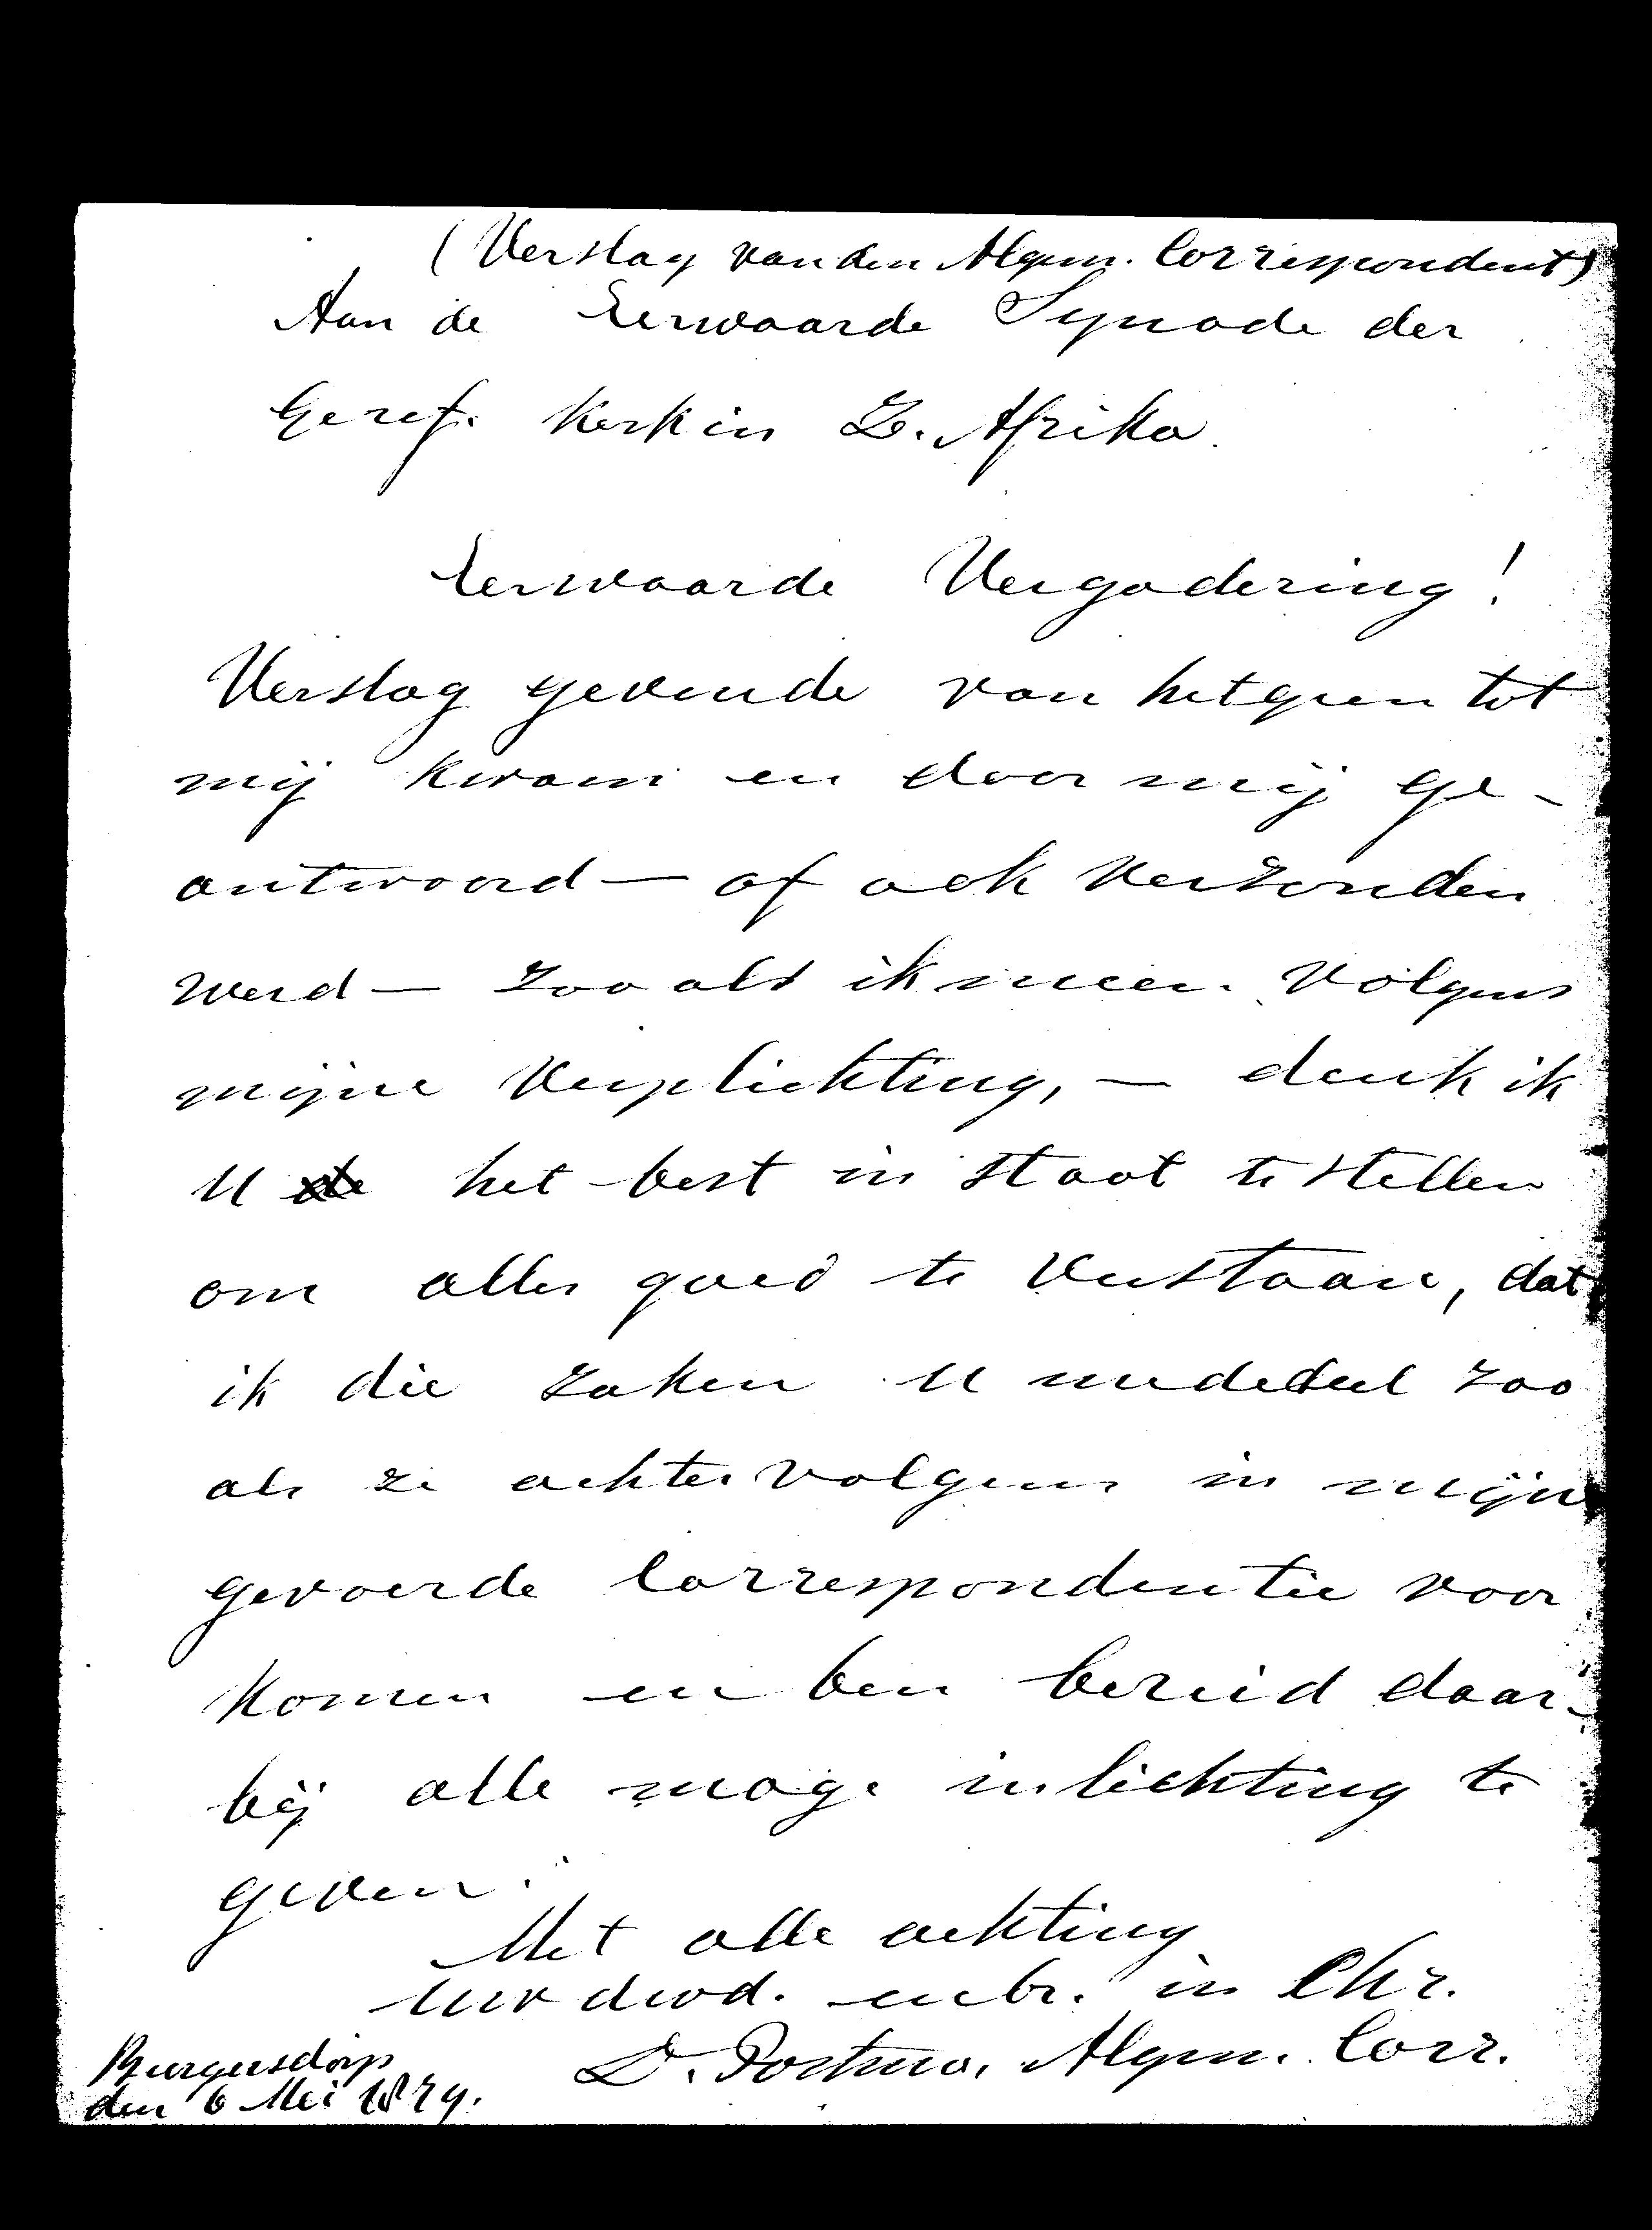 (Verslag van den Algem. Correspondent)
Aan de Eerwaarde Synode der
Geref. Kerk in Z. Afrika.
Eerwaarde Vergadering!
Verslag gevende van hetgeen tot
mij kwam en door mij ge-
antwoord — of ook verzonden
werd — zoo als ik meen volgens
mijne verplichting, — denk ik
U het best in staat te stellen
om alles goed te verstaan, dat
ik die zaken U mededeel zoo
als ze achtervolgens in mijn
gevoerde Correspondentie voor
komen en ben bereid daar-
bij alle moge inlichting te
geven.
Met alle achting
Uw dwd. en br. in Chr.
D. Postma, Algem. Corr.
Burgersdorp
den 6 Mei 1879.